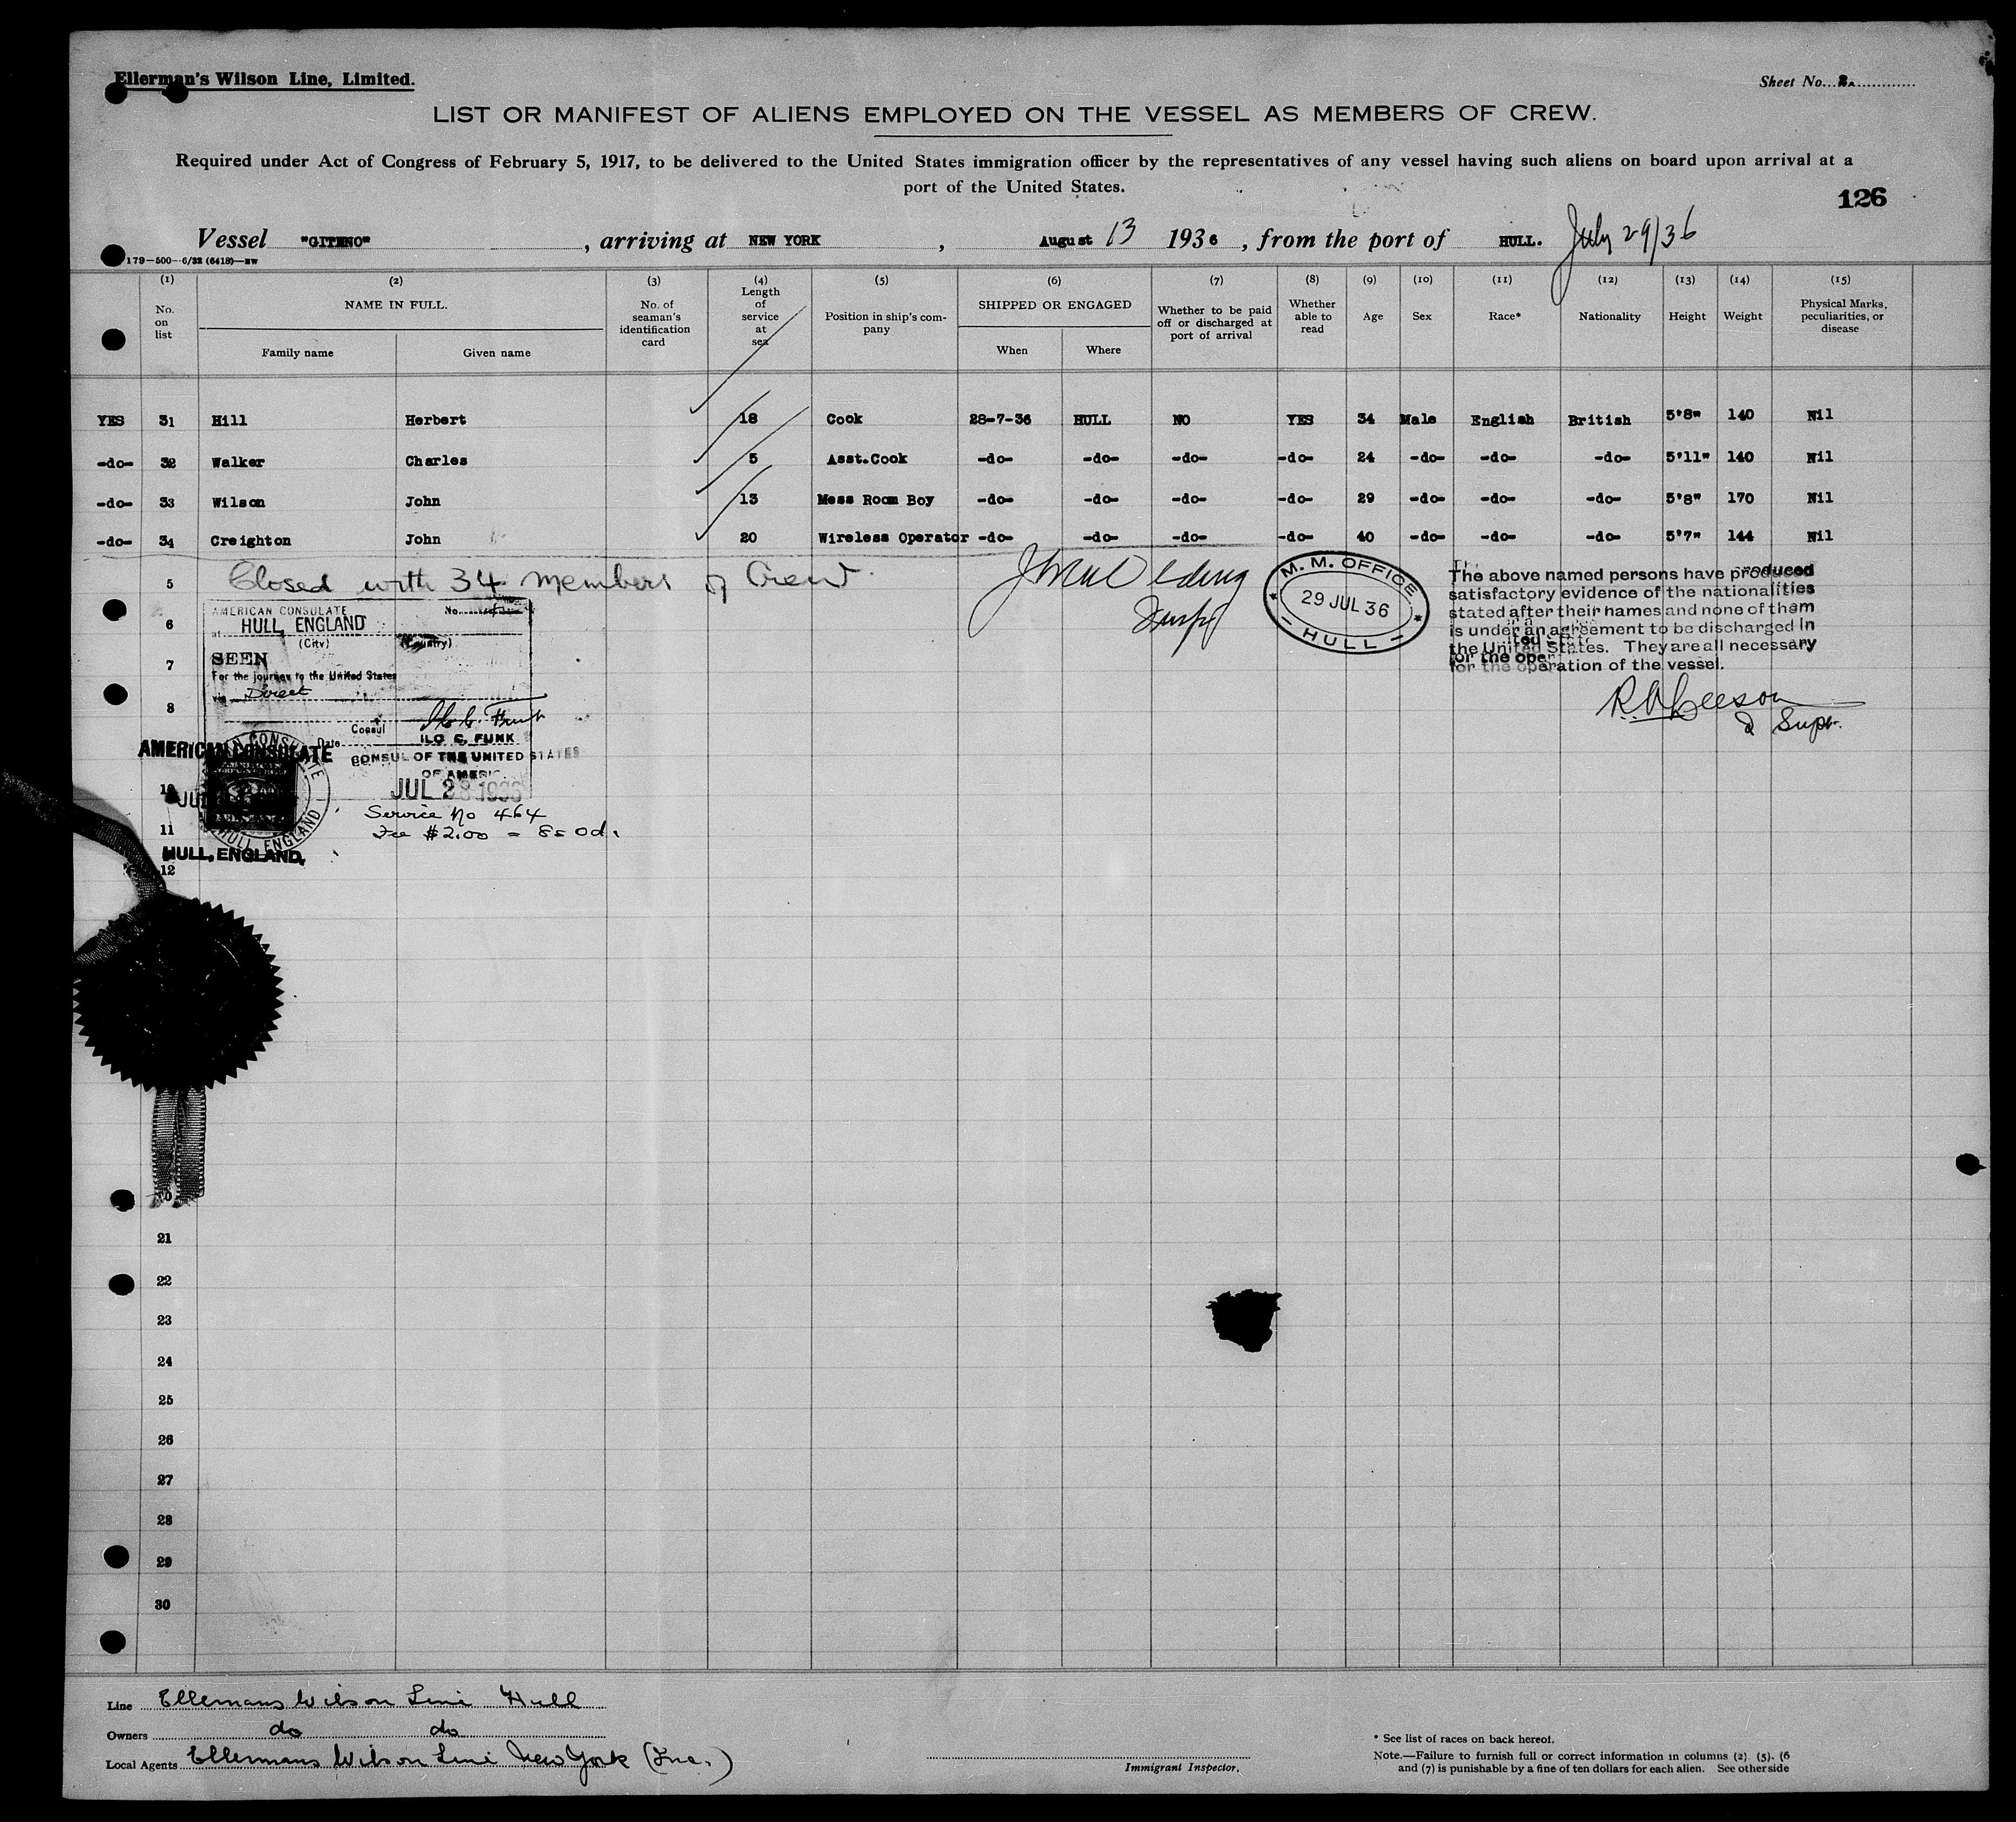 Ellerman's Wilson Line, Limited.
Sheet No. 2.
LIST OR MANIFEST OF ALIENS EMPLOYED ON THE VESSEL AS MEMBERS OF CREW.
Required under Act of Congress of February 5, 1917, to be delivered to the United States immigration officer by the representatives of any vessel having such aliens on board upon arrival at a
port of the United States.
126
Vessel "GITANO" , arriving at NEW YORK , August 13 1936 , from the port of HULL. July 29/36
179—500—6/32 (6418)—
(1) (2) (3) (4) (5) (6) (7) (8) (9) (10) (11) (12) (13) (14) (15)
No. on list NAME IN FULL. Family name Given name No. of seaman's identification card Length of service at sea Position in ship's company SHIPPED OR ENGAGED When Where Whether to be paid off or discharged at port of arrival Whether able to read Age Sex Race* Nationality Height Weight Physical Marks, peculiarities, or disease
YES 31 Hill Herbert 18 Cook 28-7-36 HULL NO YES 34 Male English British 5'8" 140 Nil
-do- 32 Walker Charles 5 Asst.Cook -do- -do- -do- -do- 24 -do- -do- -do- 5'11" 140 Nil
-do- 33 Wilson John 13 Mess Room Boy -do- -do- -do- -do- 29 -do- -do- -do- 5'8" 170 Nil
-do- 34 Creighton John 20 Wireless Operator -do- -do- -do- -do- 40 -do- -do- -do- 5'7" 144 Nil
5 Closed with 34 members of Crew.
M. M. OFFICE
29 JUL 36
HULL
The above named persons have produced
satisfactory evidence of the nationalities
stated after their names and none of them
is under an agreement to be discharged in
the United States. They are all necessary
for the operation of the vessel.
Supr.
AMERICAN CONSULATE No.
6
at HULL, ENGLAND
(City) (Country)
7
SEEN
For the journey to the United States
via Direct
8
Consul
ILO C. FUNK
Date
CONSUL OF THE UNITED STATES
OF AMERIC
AMERICAN CONSULATE
JUL 28 1936
10
Service No 464
11
Fee $2.00 = 8s 0d.
HULL, ENGLAND
HULL, ENGLAND.
12
21
22
23
24
25
26
27
28
29
30
Line Ellermans Wilson Line Hull
Owners do do
Local Agents Ellermans Wilson Line New York (Inc.)
Immigrant Inspector.
* See list of races on back hereof.
Note.—Failure to furnish full or correct information in columns (2) (5). (6
and (7) is punishable by a fine of ten dollars for each alien. See other side